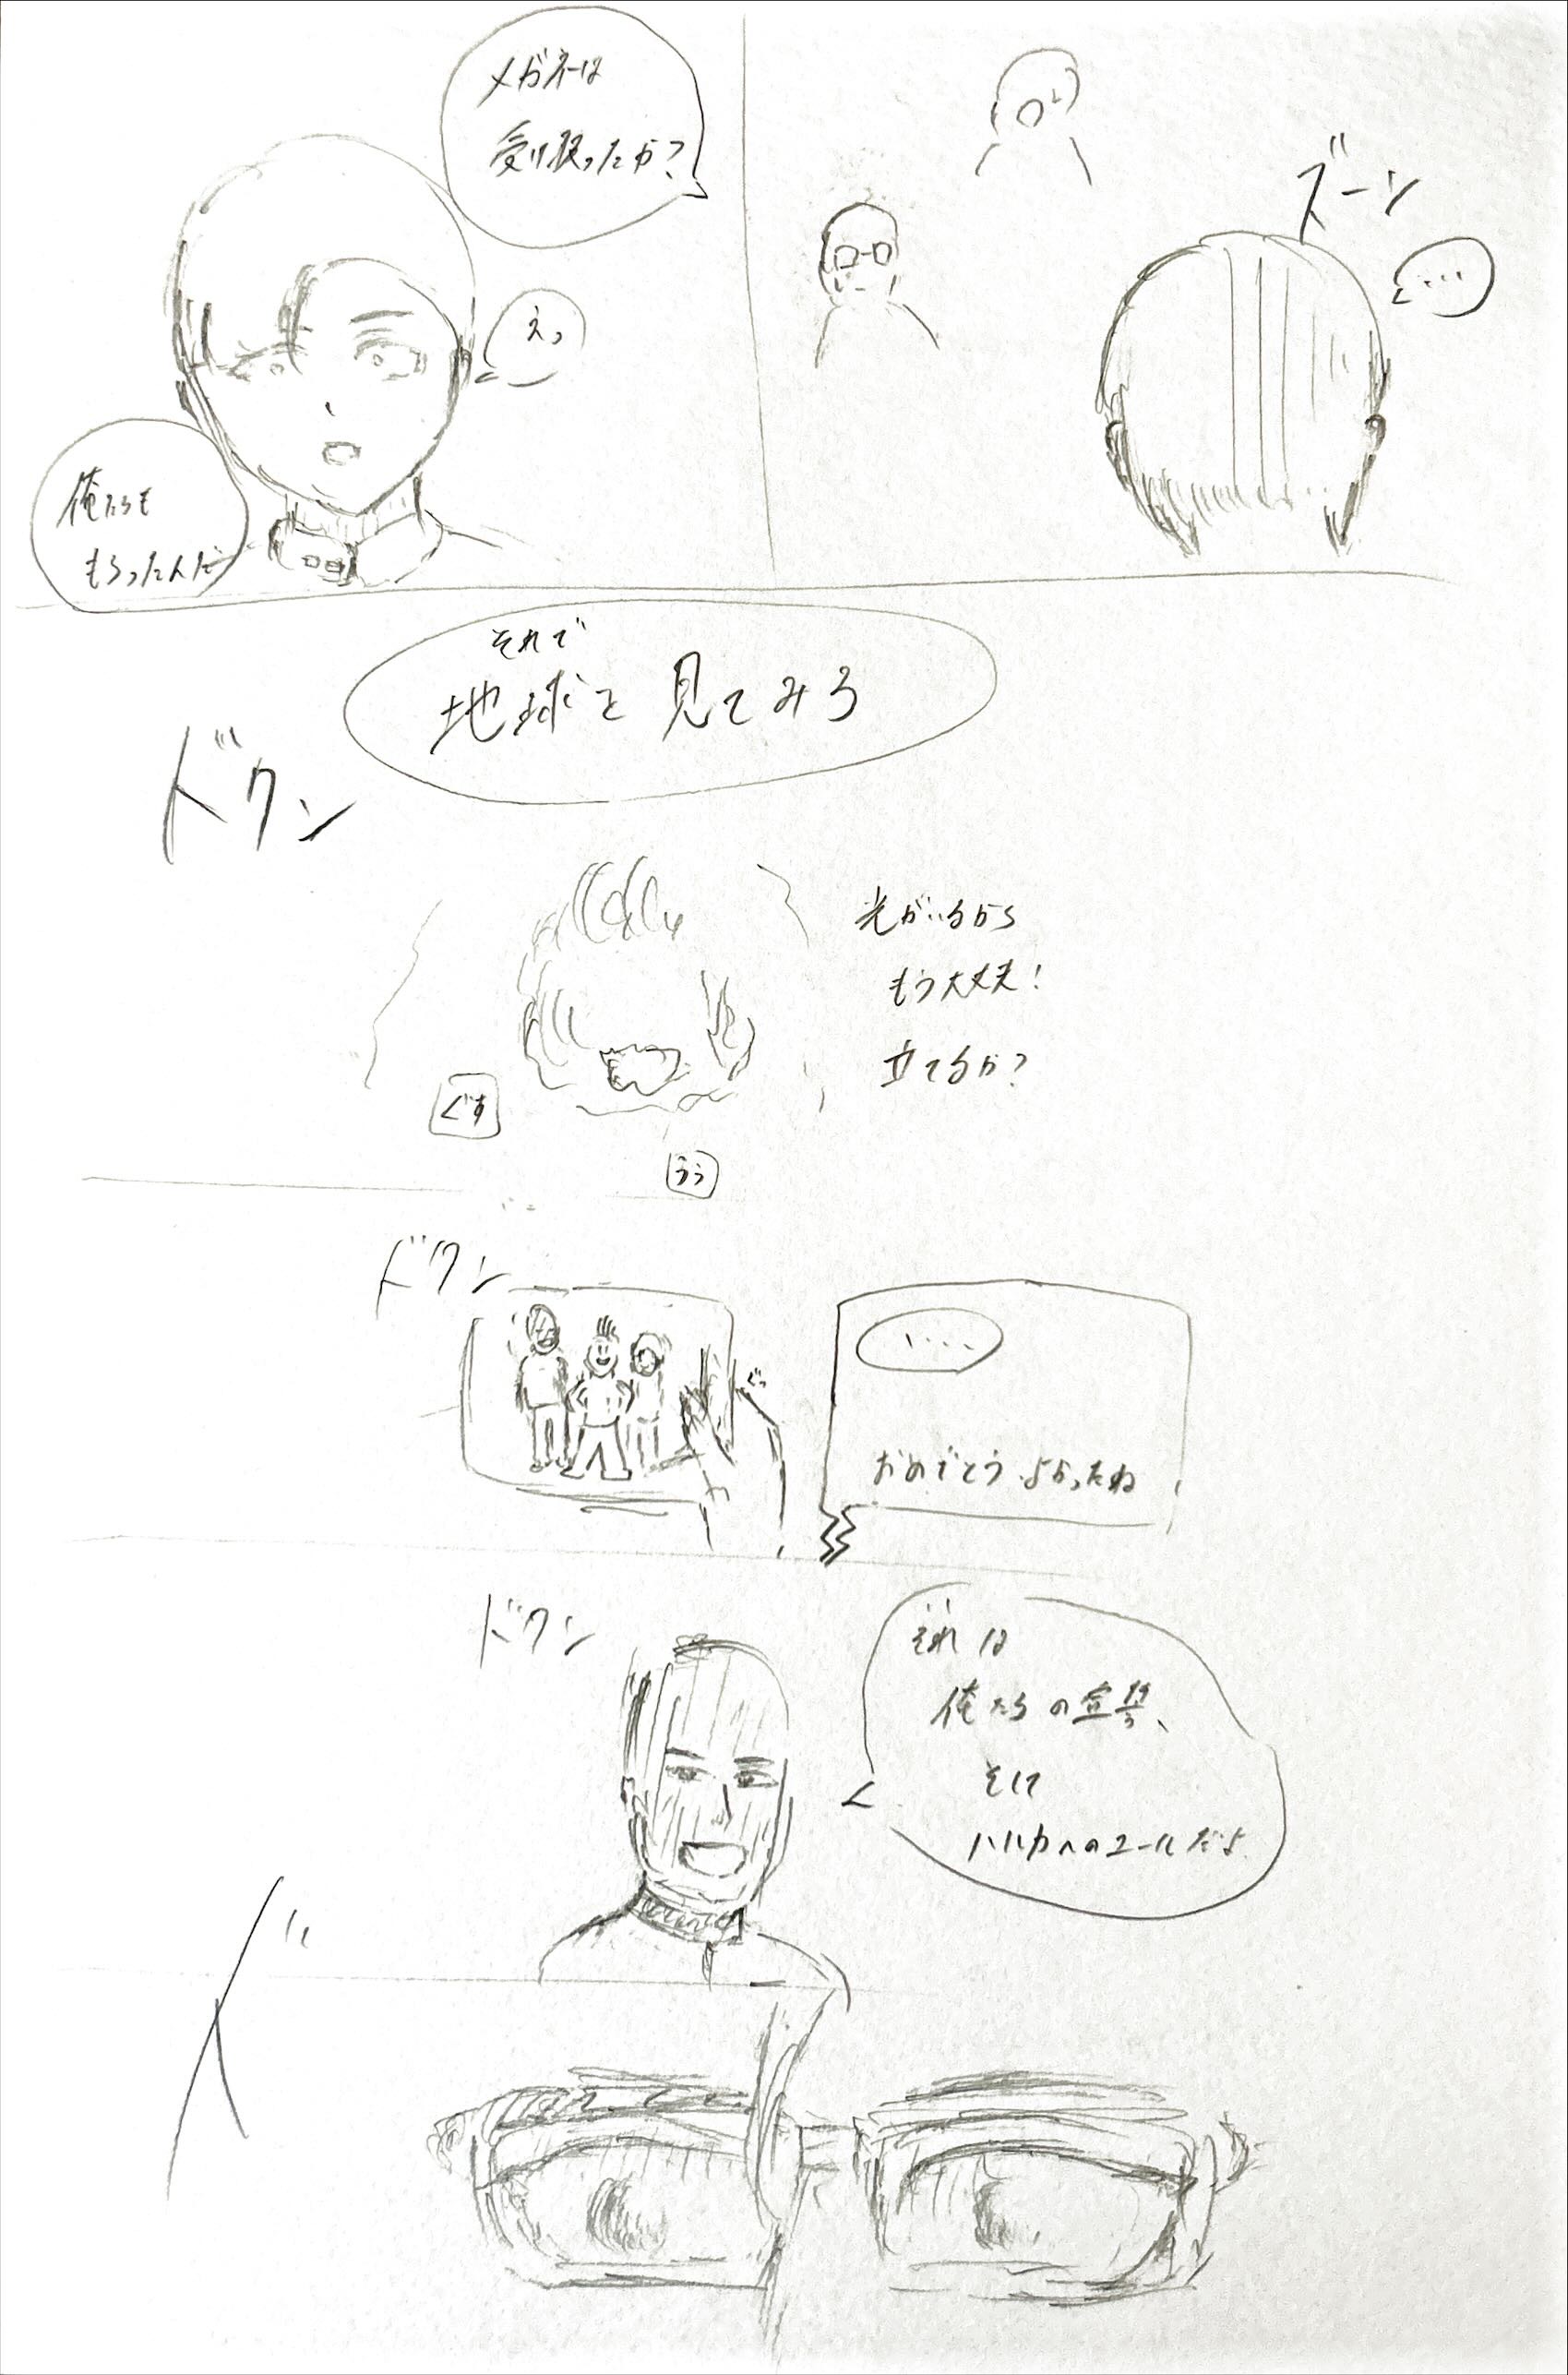 ズーン
…
メガネは
受け取ったか？
えっ
俺たちも
もらったんだ
それで
地球を見てみろ
ドクン
光がいるから
もう大丈夫！
立てるか？
ぐす
うう
ドクン
ぐっ
....
おめでとう よかったね
ドクン
それは
俺たちの宝
そして
ハルカへのエールだよ